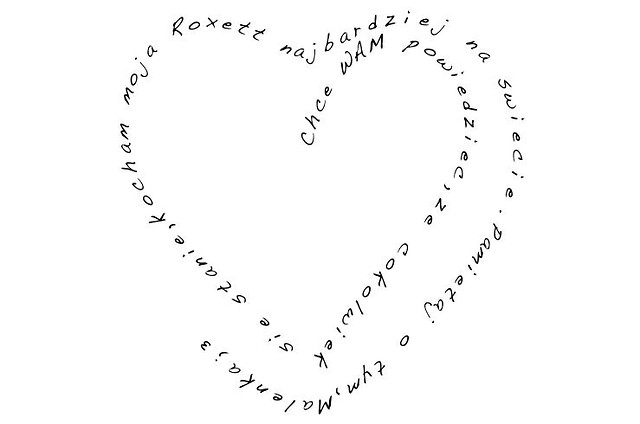 Chce WAM powiedziec,ze cokolwiek sie stanie,kocham moja Roxett najbardziej na swiecie.Pamietaj o tym,Malenka;3